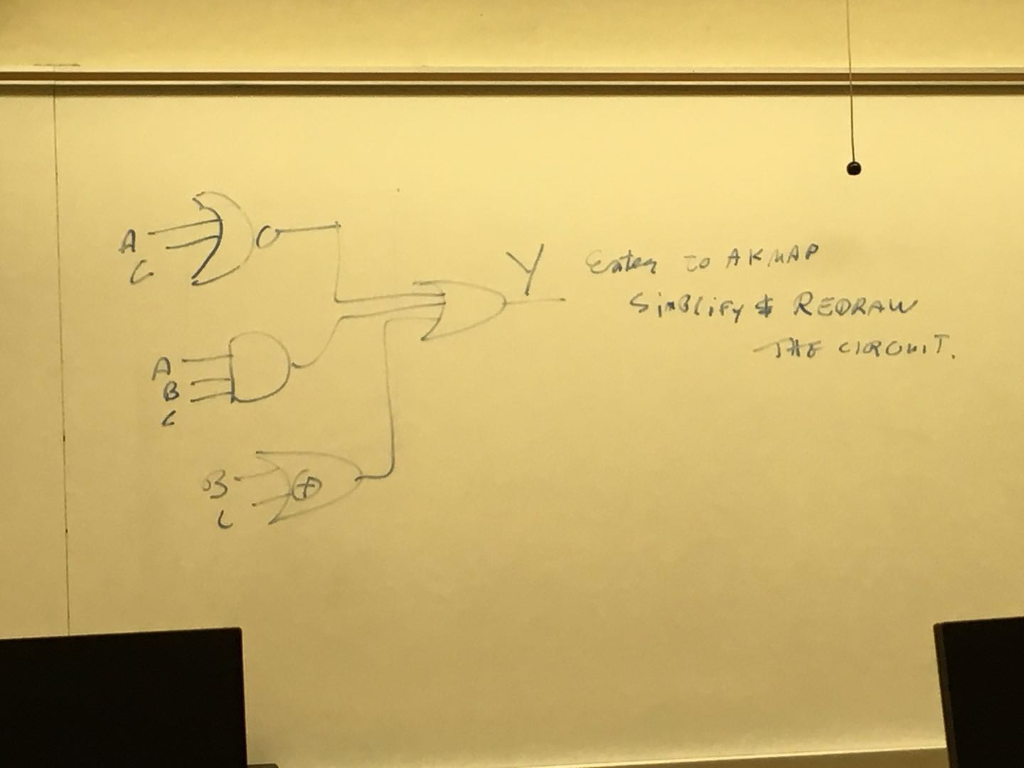 A
C
A
B
C
B
C
Y
Enter to A KMAP
Simplify & REDRAW
THE CIRCUIT.